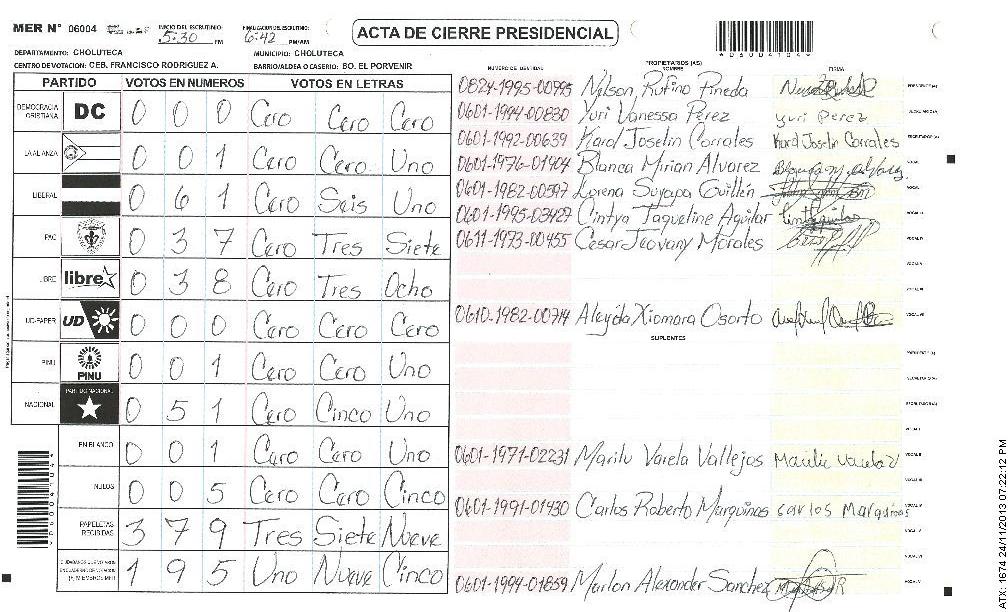 MER N° 06004 INICIO DEL ESCRUTINIO: 5:30 PM FINALIZACION DEL ESCRUTINIO: 6:42 PM/AM ACTA DE CIERRE PRESIDENCIAL
DEPARTAMENTO: CHOLUTECA MUNICIPIO: CHOLUTECA
CENTRO DE VOTACION: CEB. FRANCISCO RODRIGUEZ A. BARRIO/ALDEA O CASERIO: BO. EL PORVENIR
PARTIDO VOTOS EN NUMEROS VOTOS EN LETRAS
DEMOCRACIA CRISTIANA DC 0 0 0 Cero Cero Cero
LA ALIANZA 0 0 1 Cero Cero Uno
LIBERAL 0 6 1 Cero Seis Uno
PAC 0 3 7 Cero Tres Siete
LIBRE libre 0 3 8 Cero Tres Ocho
UD-FAPER UD 0 0 0 Cero Cero Cero
PINU PINU 0 0 1 Cero Cero Uno
NACIONAL PARTIDO NACIONAL 0 5 1 Cero Cinco Uno
EN BLANCO 0 0 1 Cero Cero Uno
NULOS 0 0 5 Cero Cero Cinco
PAPELETAS RECIBIDAS 3 7 9 Tres Siete Nueve
1 9 5 Uno Nueve Cinco
NUMERO DE IDENTIDAD PROPIETARIOS (AS) NOMBRE FIRMA
0824-1995-00795 Nelson Rufino Pineda
0601-1994-00830 Yuri Vanessa Perez yuri Perez
0601-1992-00639 Karol Joselin Corrales Karol Joselin Corrales
0601-1976-01904 Blanca Mirian Alvarez
0601-1982-00597 Lorena Suyapa Guillén
0601-1995-03427 Cintya Jaqueline Aguilar
0611-1973-00455 Cesar Jeovany Morales
0610-1982-00714 Aleyda Xiomara Osorto
SUPLENTES
0601-1971-02231 Marilu Varela Vallejos
0601-1991-01430 Carlos Roberto Marquinas carlos Marquinas
0601-1994-01859 Marlon Alexander Sanchez
ATX: 1674 24/11/2013 07:22:12 PM